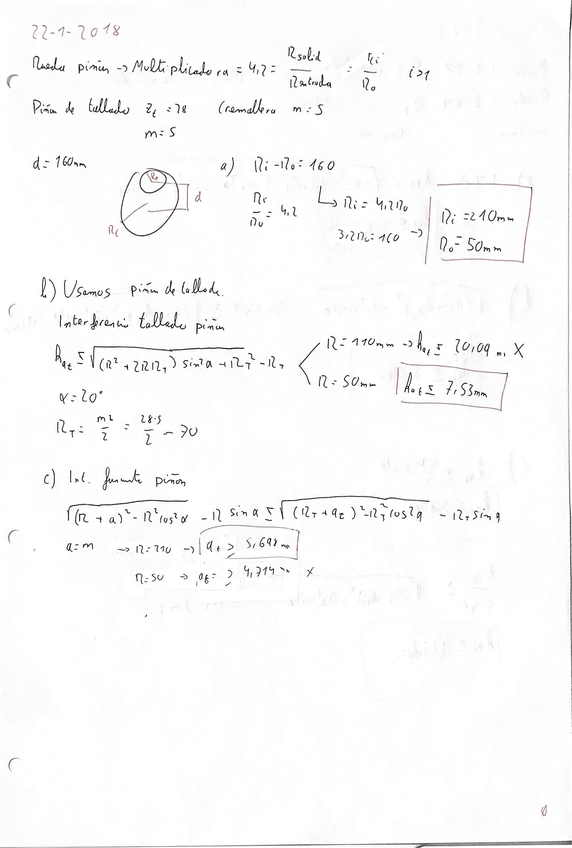 22-1-2018
Rueda piñón → Multiplicadora = 4,2 = Rsolid / Rentrada = Ri / Ro i>1
Piñón de tallado Zt = 28 Cremallera m = 5
m = 5
d = 160mm
a) Ri - Ro = 160
Ri / Ro = 4,2
↳ Ri = 4,2Ro
3,2Ro = 160 →
Ri = 210mm
Ro = 50mm
Ro
d
Ri
b) Usamos piñón de tallado.
Interferencia tallado piñón
hat ≤ √((R² + 2RRT) sin²α + RT²) - RT
R = 210mm → hat ≤ 20,09 m, X
R = 50mm
hat ≤ 7,53mm
α = 20°
RT = mz / 2 = 28·5 / 2 - 70
c) Int. piñón
√((R + a)² - R² cos²α) - R sin α ≤ √((RT + at)² - RT² cos²α) - RT sin α
a = m → R = 210 → at ≥ 5,698m
R = 50 → at = ≥ 4,714m X